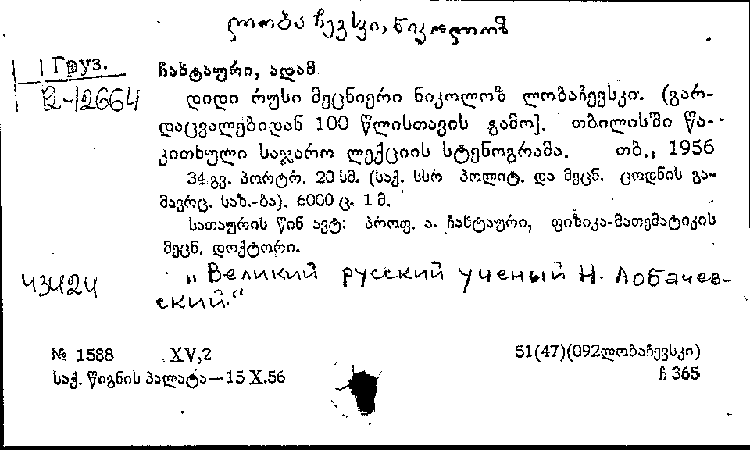 ლობაჩევსკი, ნიკოლოზ
Груз.
ჩახტაური, ადამ
В-12664
დიდი რუსი მეცნიერი ნიკოლოზ ლობაჩევსკი. (გარ-
დაცვალებიდან 100 წლისთავის გამო]. თბილისში წა-
კითხული საჯარო ლექციის სტენოგრამა. თბ., 1956
34 გვ. პორტრ. 20 სმ. (საქ. სსრ პოლიტ. და მეცნ. ცოდნის გა-
მავრც. საზ.-ბა). 6000 ც. 1 მ.
სათაურის წინ ავტ: პროფ. ა. ჩახტაური, ფიზიკა-მათემატიკის
მეცნ. დოქტორი.
43424
„Великий русский ученый Н. Лобачев-
ский."
№ 1588 XV,2 51(47)(092ლობაჩევსკი)
საქ. წიგნის პალატა—15 X.56 ჩ 365